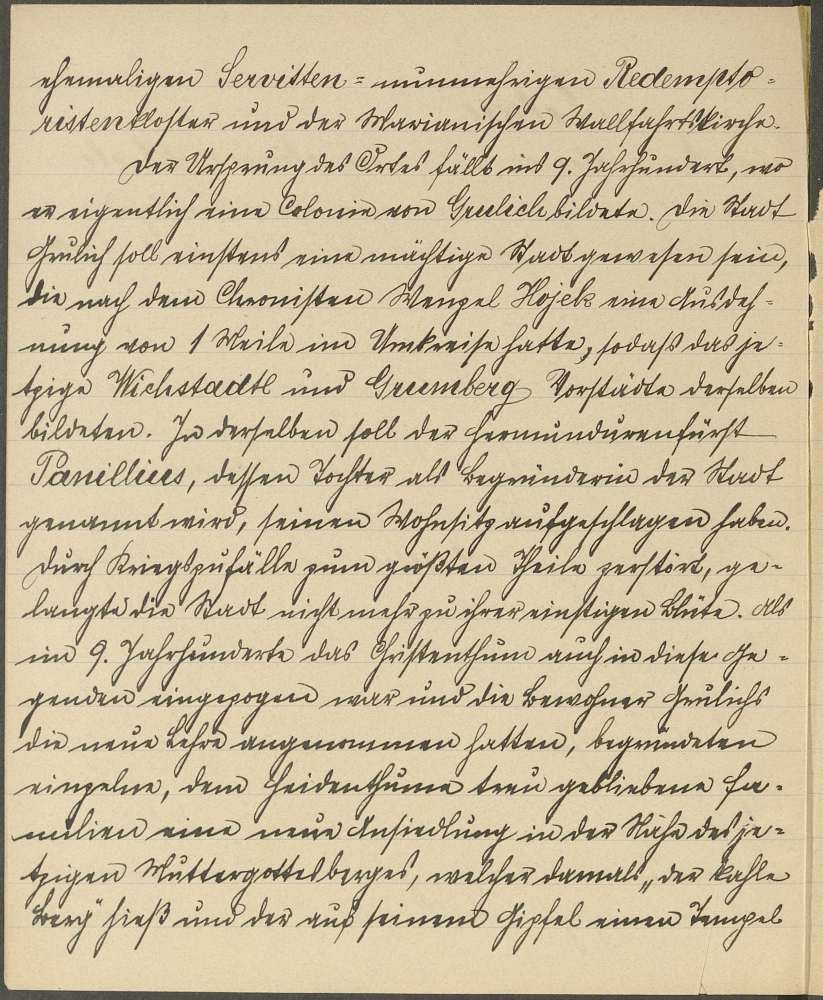 ehemaligen Serviten = nunmehrigen Redempto =
ristenkloster und der Marianischen Wallfahrtskirche.
Der Ursprung des Ortes fällt ins 9. Jahrhundert, wo
er eigentlich eine Colonie von Grulich bildete. Die Stadt
Grulich soll einstens eine mächtige Stadt gewesen sein,
die nach dem Chronisten Wenzel Hojek eine Ausdeh =
nung von 1 Meile im Umkreise hatte, sodaß das je =
tzige Wichstadtl und Grumberg Vorstädte derselben
bildeten. In derselben soll der Hermundurenfürst
Panillius, dessen Tochter als Begründerin der Stadt
genannt wird, seinen Wohnsitz aufgeschlagen haben.
Durch Kriegszufälle zum größten Theile zerstört, ge =
langte die Stadt nicht mehr zu ihrer einstigen Blüte. Als
im 9. Jahrhunderte das Christenthum auch in diese Ge =
genden eingezogen war und die Bewohner Grulichs
die neue Lehre angenommen hatten, begründeten
einzelne, dem Heidenthume treu gebliebene Fa =
milien eine neue Ansiedlung in der Nähe des je =
tzigen Muttergottesberges, welcher damals „der kahle
Berg" hieß und der auf seinem Gipfel einen Tempel